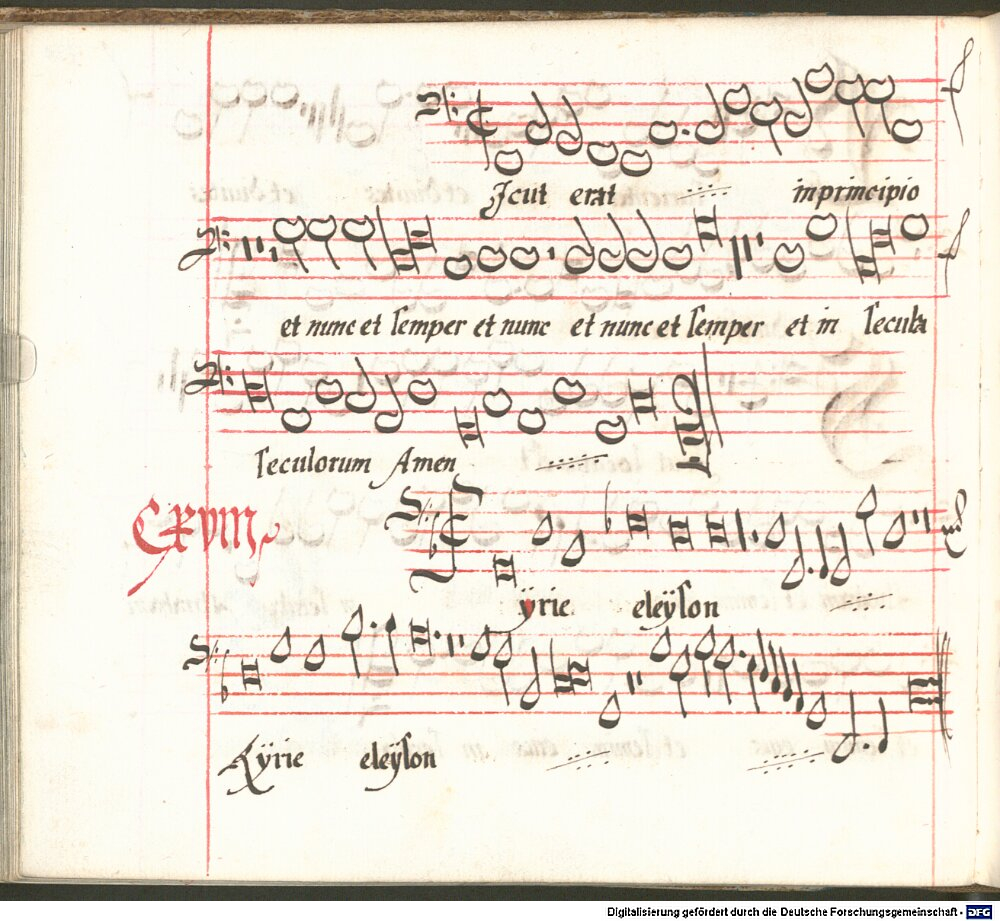 Jcut erat inprincipio
et nunc et semper et nunc et nunc et semper et in secula
seculorum Amen
CXVIII
ÿrie eleÿson
Kÿrie eleÿson
Digitalisierung gefördert durch die Deutsche Forschungsgemeinschaft - DFG